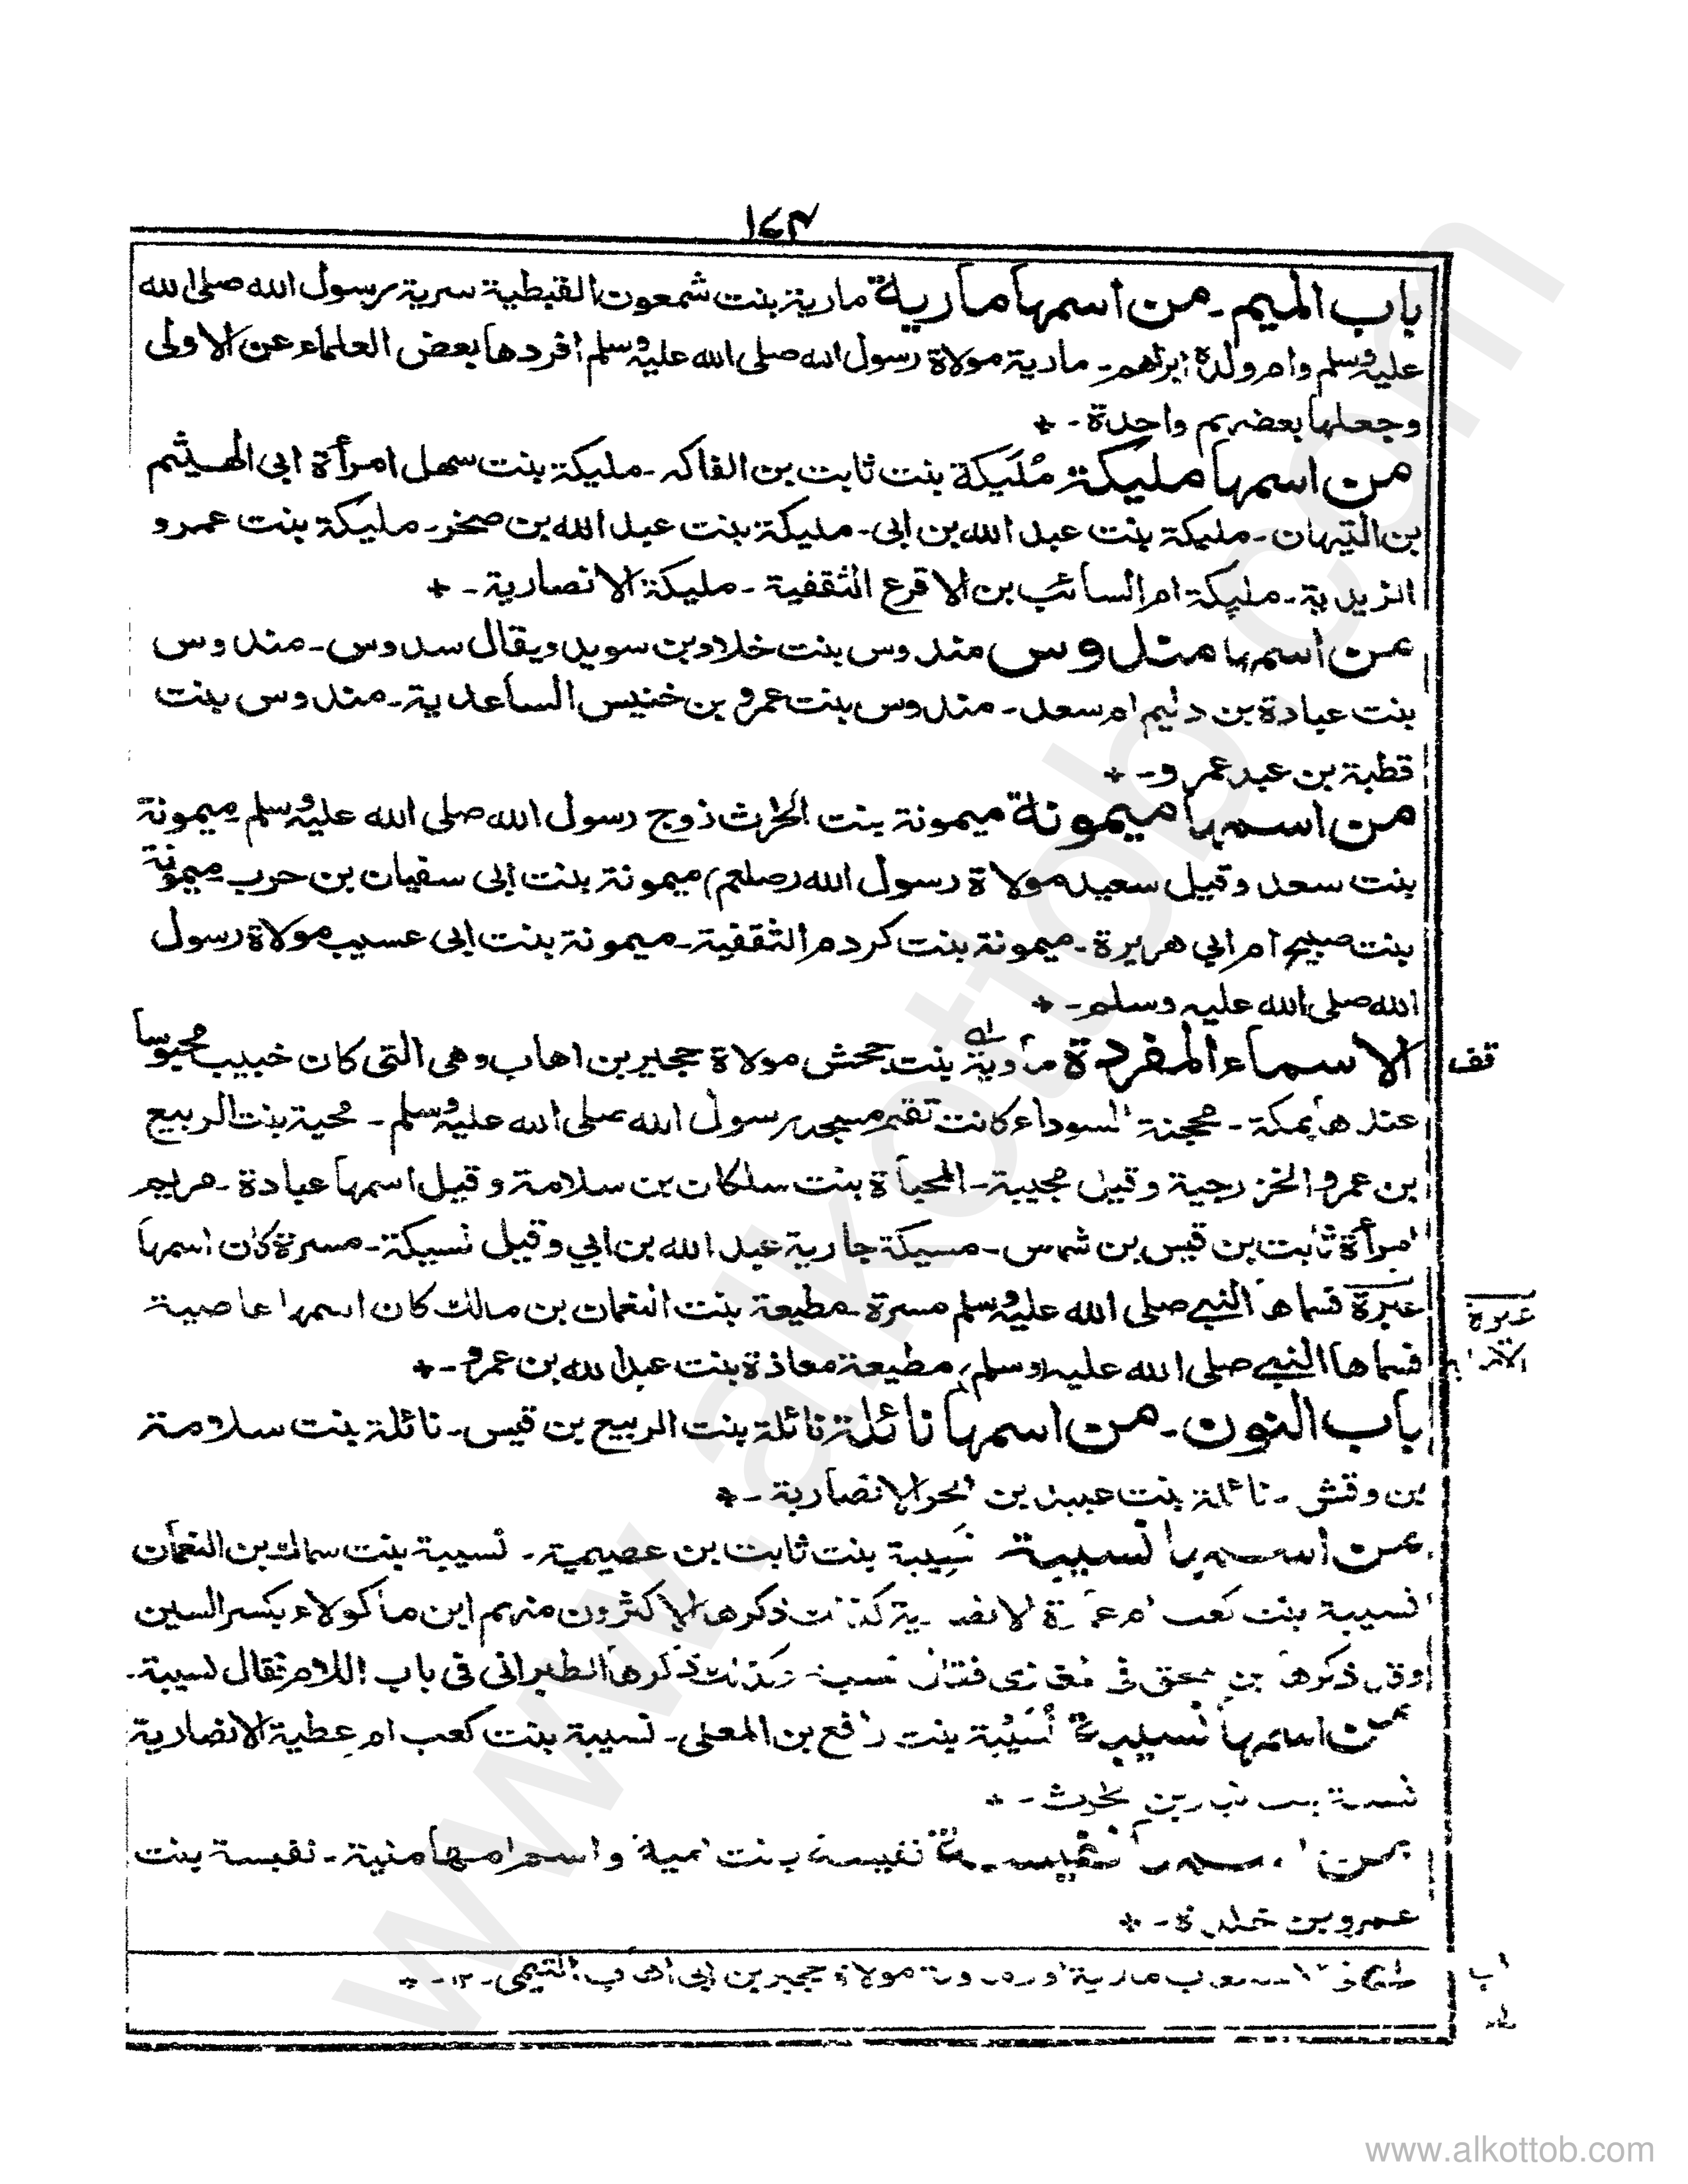 ١٧٣
باب الميم ـ من اسمها مارية مارية بنت شمعون القبطية سرية رسول الله صلى الله
عليه وسلم وام ولده ابراهيم ـ مارية مولاة رسول الله صلى الله عليه وسلم افردها بعض العلماء عن الاولى
وجعلها بعضهم واحدة ـ *
من اسمها مليكة مُلَيكة بنت ثابت بن الفاكه ـ مليكة بنت سهل امرأة ابى الهيثم
بن التيهان ـ مليكة بنت عبد الله بن ابى ـ مليكة بنت عبد الله بن صخر ـ مليكة بنت عمرو
الزيدية ـ مليكة ام السائب بن الاقرع الثقفية ـ مليكة الانصارية ـ *
من اسمها مندوس مندوس بنت خلاد بن سويد ويقال سدوس ـ مندوس
بنت عبادة بن دليم ام سعد ـ مندوس بنت عمرو بن خنيس الساعدية ـ مندوس بنت
قطبة بن عبد عمرو ـ *
من اسمها ميمونة ميمونة بنت الحرث زوج رسول الله صلى الله عليه وسلم ميمونة
بنت سعد وقيل سعيد مولاة رسول الله (صلعم) ميمونة بنت ابى سفيان بن حرب ميمونة
بنت صبيح ام ابي هريرة ـ ميمونة بنت كردم الثقفية ـ ميمونة بنت ابى عسيب مولاة رسول
الله صلى الله عليه وسلم ـ *
الاسماء المفردة ماوية بنت جحش مولاة حجير بن اهاب وهى التى كان خبيب محبوسا
قف
عندها بمكة ـ محجنة السوداء كانت تقم مسجد رسول الله صلى الله عليه وسلم ـ محية بنت الربيع
بن عمرو الخزرجية وقيل مجيبة ـ المحيأة بنت سلكان بن سلامة وقيل اسمها عبادة ـ مريم
امرأة ثابت بن قيس بن شماس ـ مسيكة جارية عبد الله بن ابي وقيل نسيكة ـ مسرة كان اسمها
عبرة فسماها النبي صلى الله عليه وسلم مسرة ـ مطيعة بنت النعمان بن مالك كان اسمها عاصية
عبرة
فسماها النبي صلى الله عليه وسلم مطيعة معاذة بنت عبد الله بن عمرو ـ *
باب النون ـ من اسمها نائلة نائلة بنت الربيع بن قيس ـ نائلة بنت سلامة
بن وقش ـ نائلة بنت عبيد بن الحر الانصارية ـ *
من اسمها نسيبة نَسِيبة بنت ثابت بن عصيمة ـ نسيبة بنت سماك بن النعمان
نسيبة بنت كعب ام ذكرها الاكثرون منهم ابن ماكولاء بكسر السين
وقد ذكرها فى فقال ذكرها الطبرانى فى باب اللام فقال لسيبة ـ
من اسمها نسيبة نُسَيْبة بنت رافع بن المعلى ـ نسيبة بنت كعب ام عطية الانصارية
بن الحرث ـ *
من نفيسة نفيسة بنت امية واسم امها منية ـ نفيسة بنت
عمرو بن خلدة ـ *
مارية مولاة حجير بن ابى اهاب التيمى ـ ١٢ ـ *
www.alkottob.com
www.alkottob.com